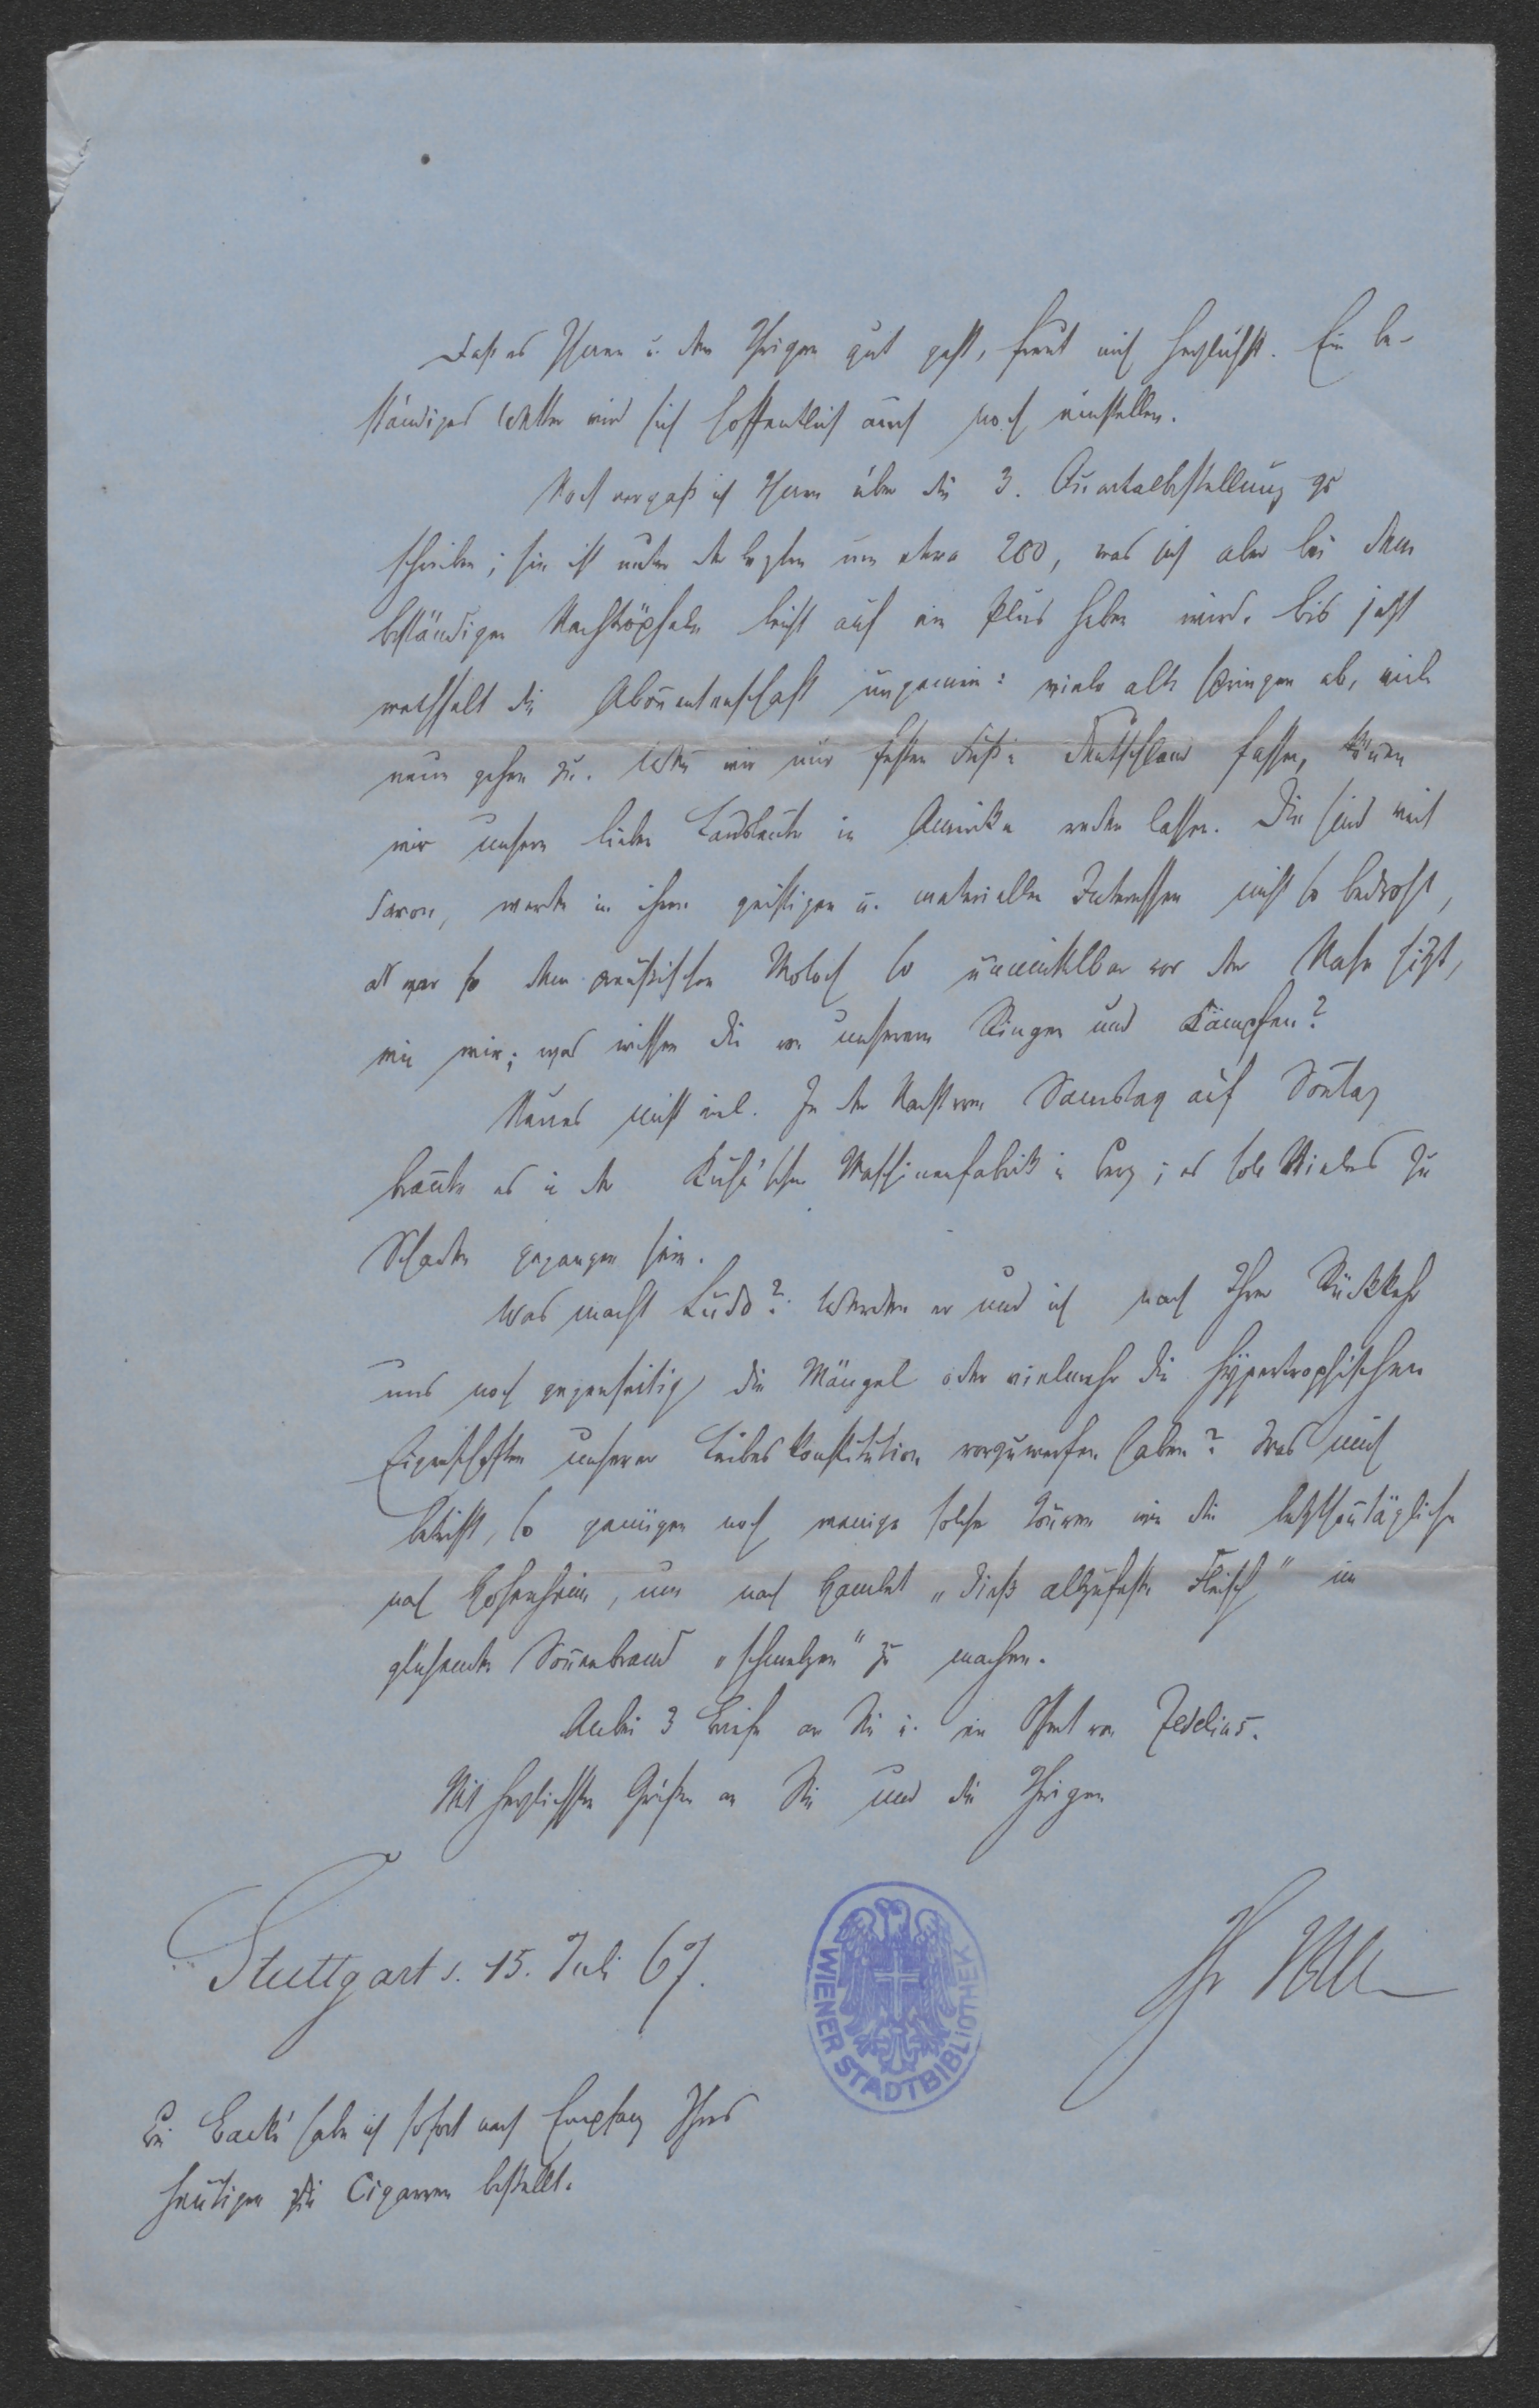 Daß es Ihnen u. den Ihrigen gut geht, freut mich herzlichst. Ein be-
ständiges Wetter wird sich hoffentlich auch noch einstellen.
Noch vergaß ich Ihnen über die 3. Quartalbestellung zu
schreiben; sie ist unter der lezten um etwa 200, was sich aber bei dem
beständigen Nachtröpfeln leicht auf ein Plus heben wird. Bis jetzt
wechselt die Abon̄entenschaft ungemein: viele alte springen ab, viele
neue gehen zu. Wen̄ wir nur festen Fuß in Deutschland fassen, kön̄en
wir unsere lieben Landsleute in Amerika reden lassen. Die sind weit
davon, werden in ihren geistigen u. materiellen Interessen nicht so bedroht,
als wer so dem preußischen Moloch so unmittelbar vor der Nase sitzt,
wie wir; was wissen die von unserem Ringen und Kämpfen?
Neues nicht viel. In der Nacht vom Samstag auf Son̄tag
bran̄te es in der Kuhn'schen Maschinenfabrik in Berg; es soll Vieles zu
Schaden gegangen sein.
Was macht Ludo? Werden er und ich nach Ihrer Rückkehr
uns noch gegenseitig die Mängel oder vielmehr die hypertrophischen
Eigenschaften unserer Leibeskonstitution vorzuwerfen haben? Was mich
betrifft, so genügen noch wenige solche Touren wie die letztson̄tägliche
nach Hohenheim, um nach Hamlet „dieß allzufeste Fleisch" im
glühenden Son̄enbrand „schmelzen" zu machen.
Anbei 3 Briefe an Sie u. ein von Zedelius.
Mit herzlichsten Grüßen an Sie und die Ihrigen
Stuttgart d. 15. Juli 67.
Ihr
WIENER STADTBIBLIOTHEK
Bei habe ich sofort nach Empfang Ihres
heutigen die Cigarren bestellt.